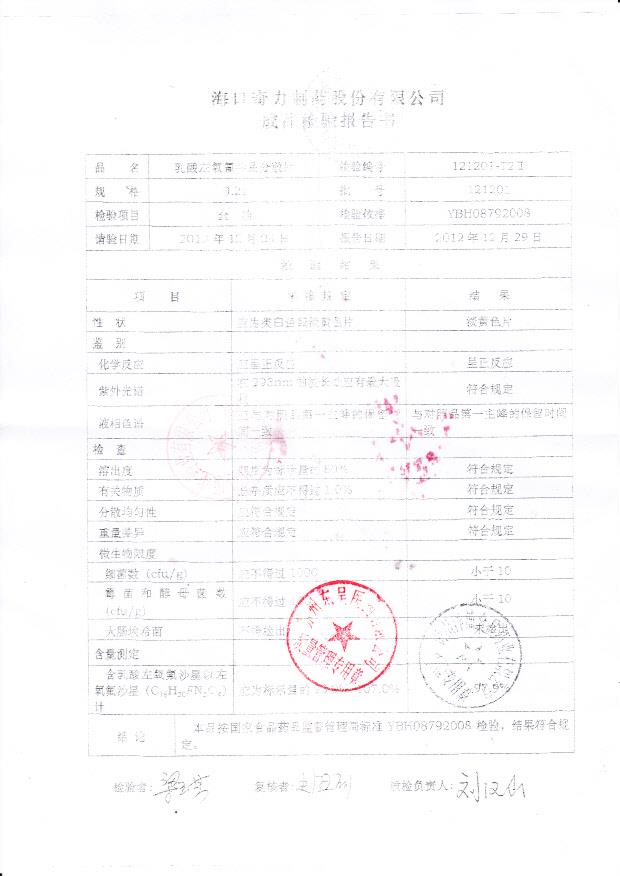 海口奇力制药股份有限公司
成品检验报告书
品 名 乳酸左氧氟沙星分散片 检验编号 121201-T2I
规 格 0.2g 批 号 121201
检验项目 全 检 检验依据 YBH08792008
请验日期 2012年12月 日 报告日期 2012年12月29日
检 验 结 果
项 目 标 准 规 定 结 果
性 状 应为类白色至淡黄色片 淡黄色片
鉴 别
化学反应 应呈正反应 呈正反应
紫外光谱 在 293nm 的波长处应有最大吸收 符合规定
液相色谱 应与对照品第一主峰的保留时间一致 与对照品第一主峰的保留时间一致
检 查
溶出度 80% 符合规定
有关物质 总杂质应不得过 1.0% 符合规定
分散均匀性 应符合规定 符合规定
重量差异 应符合规定 符合规定
微生物限度
细菌数 (cfu/g) 应不得过 1000 小于 10
霉菌和酵母菌数
(cfu/g) 应不得过 小于 10
大肠埃希菌 不得检出 未检出
含量测定
含乳酸左氧氟沙星以左
氧氟沙星 (C₁₈H₂₀FN₃O₄)
计 应为标示量的 107.0%
结 论 本品按国家食品药品监督管理局标准 YBH08792008 检验，结果符合规定。
检验者: 复核者: 质检负责人:
质量管理专用章